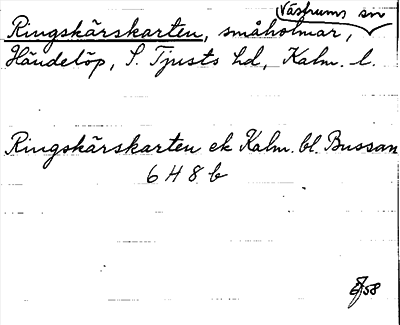 Västrums sn
Ringskärskarten, småholmar,
Händelöp, S. Tjusts hd, Kalm. l.
Ringskärskarten ek Kalm. bl. Bussan
6 H 8 b
58